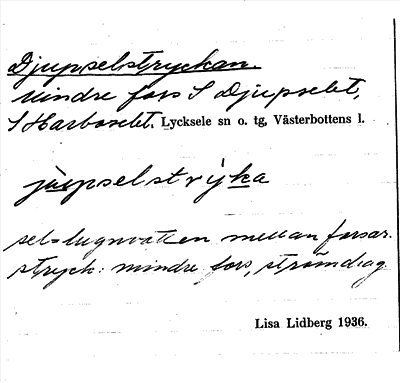 Djupselstryckan.
mindre fors S Djupselet,
S Harbaselet. Lycksele sn o. tg, Västerbottens l.
jùpselstrỳka
sel=lugnvatten mellan forsar.
stryck: mindre fors, strömdrag
Lisa Lidberg 1936.